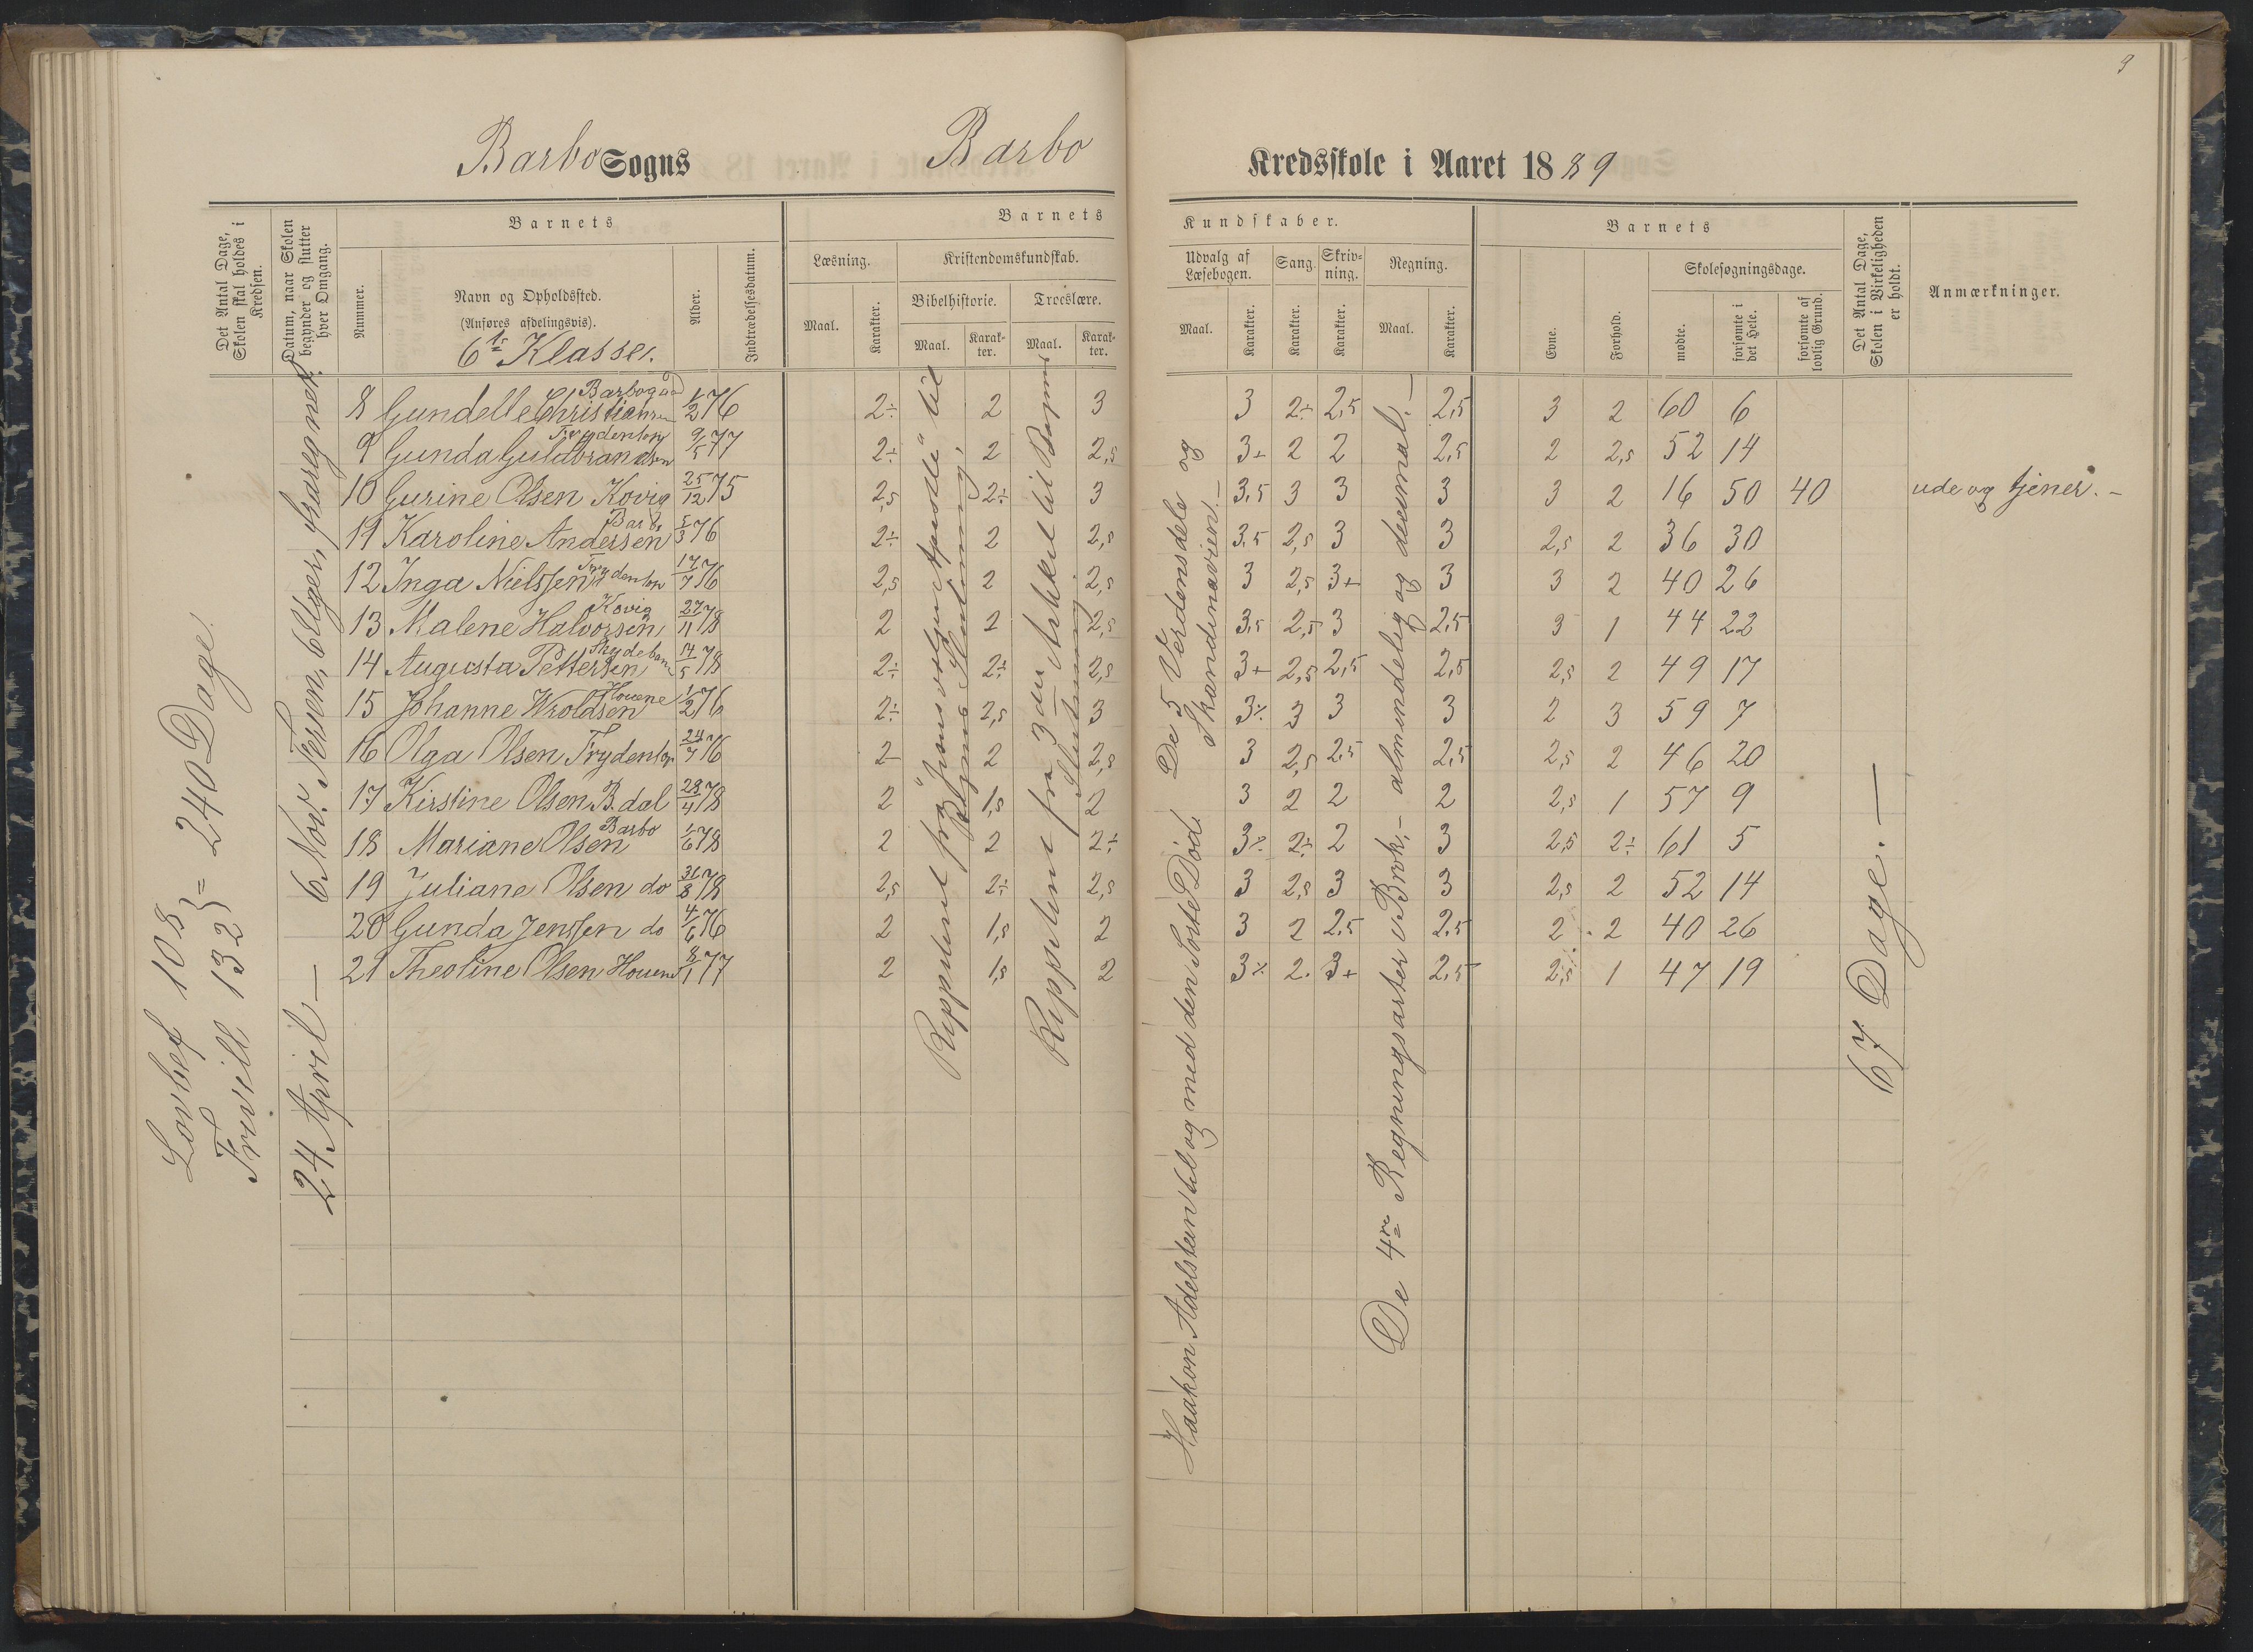 9
Barbo Sogns Barbo Kredsskole i Aaret 1889
Det Antal Dage, Skolen skal holdes i Kredsen.
Datum, naar Skolen begynder og slutter hver Omgang.
Barnets
Nummer.
Navn og Opholdssted.
(Anføres afdelingsvis).
6te Klasse.
Alder.
Indtrædelsesdatum.
Barnets Kundskaber.
Læsning.
Maal.
Karakter.
Kristendomskundskab.
Bibelhistorie.
Maal.
Karakter.
Troeslære.
Maal.
Karakter.
Udvalg af Læsebogen.
Maal.
Karakter.
Sang.
Karakter.
Skrivning.
Karakter.
Regning.
Maal.
Karakter.
Barnets
Evne.
Forhold.
Skolesøgningsdage.
mødte.
forsømte i det Hele.
forsømte af lovlig Grund.
Det Antal Dage, Skolen i Virkeligheden er holdt.
Anmærkninger.
Lovbef 108
Frivill 132 } = 240 Dage.
6 Nov. Ferien, 6 Uger, fraregnet.
24 April —
8 Gundelle Christiansen Barbogaard 1/2 76 2÷ 2 3 3 2÷ 2,5 2,5 3 2 60 6
9 Gunda Guldbrandsen Frydenlon 9/5 77 2÷ 2 2,5 3+ 2 2 2,5 2 2,5 52 14
10 Gurine Olsen Kovig 25/12 75 2,5 2÷ 3 3,5 3 3 3 3 2 16 50 40 ude og tjener. –
11 Karoline Andersen Barbo 5/3 76 2÷ 2 2,5 3,5 2,5 3 3 2,5 2 36 30
12 Inga Nielssen Frydenlon 17/7 76 2,5 2 2,5 3 2,5 3+ 3 3 2 40 26
13 Malene Halvorsen Kovig 27/11 78 2 2 2,5 3,5 2,5 3 2,5 3 1 44 22
14 Augusta Pettersen Skydeban 14/5 78 2÷ 2÷ 2,5 3+ 2,5 2,5 2,5 2,5 2 49 17
15 Johanne Wroldsen Houene 1/2 76 2÷ 2,5 3 3% 3 3 3 2 3 59 7
16 Olga Olsen Frydenlon 24/7 76 2- 2 2,5 3 2,5 2,5 2,5 2,5 2 46 20
17 Kirstine Olsen B.dal 28/4 78 2 1,5 2 3 2 2 2 2,5 1 57 9
18 Mariane Olsen Barbo 1/6 78 2 2 2÷ 3% 2÷ 2 3 2,5 2÷ 61 5
19 Juliane Olsen do 30/8 78 2,5 2÷ 2,5 3 2,5 3 3 2,5 2 52 14
20 Gunda Jenssen do 4/6 76 2 1,5 2 3 2 2,5 2,5 2 2 40 26
21 Theoline Olsen Houene 8/1 77 2 1,5 2 3% 2. 3+ 2,5 2,5 1 47 19
Reppeteret fra "Jesu valgen Apostle" til Bogens Slutning,
Reppetere fra 3die Artikel til Bogens Slutning
Haakon Adelstein til og med den Sorte Død. De 5 Verdensdele og Skandinavien. –
De 4re Regningsarter i Brøk, – almindelig og decimal. –
67 Dage. —